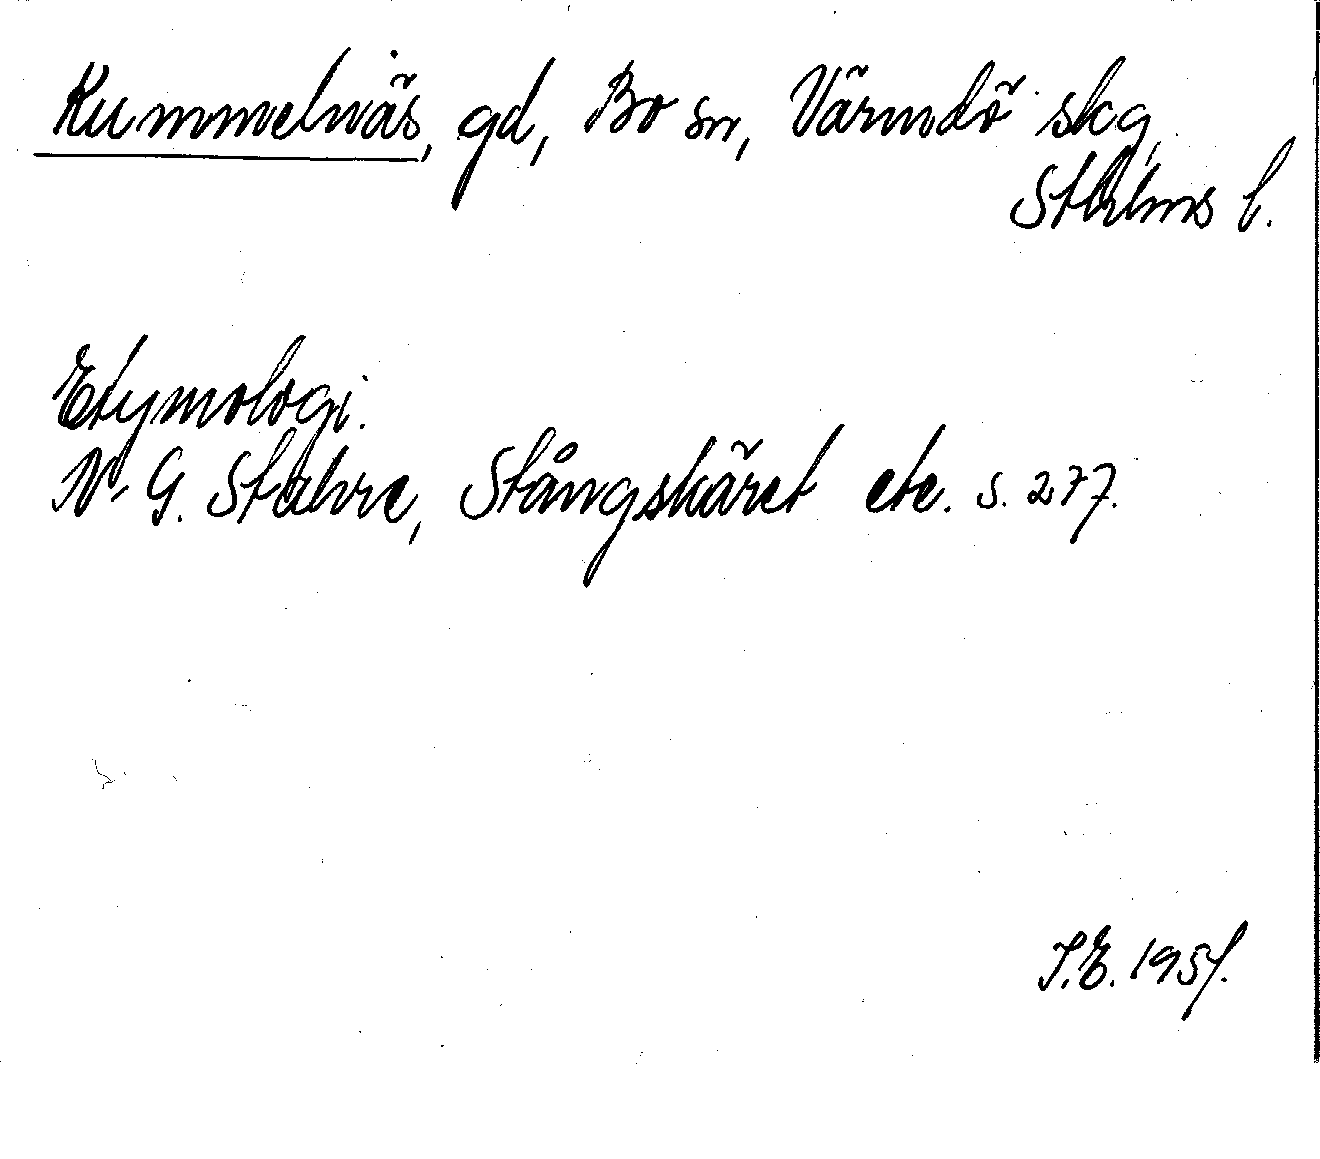 Kummelnäs, gd, Bo sn, Värmdö skg,
Sthlms l.
Etymologi.
N.G. Stahre, Stångskäret etc. s. 277.
S.E. 1957.